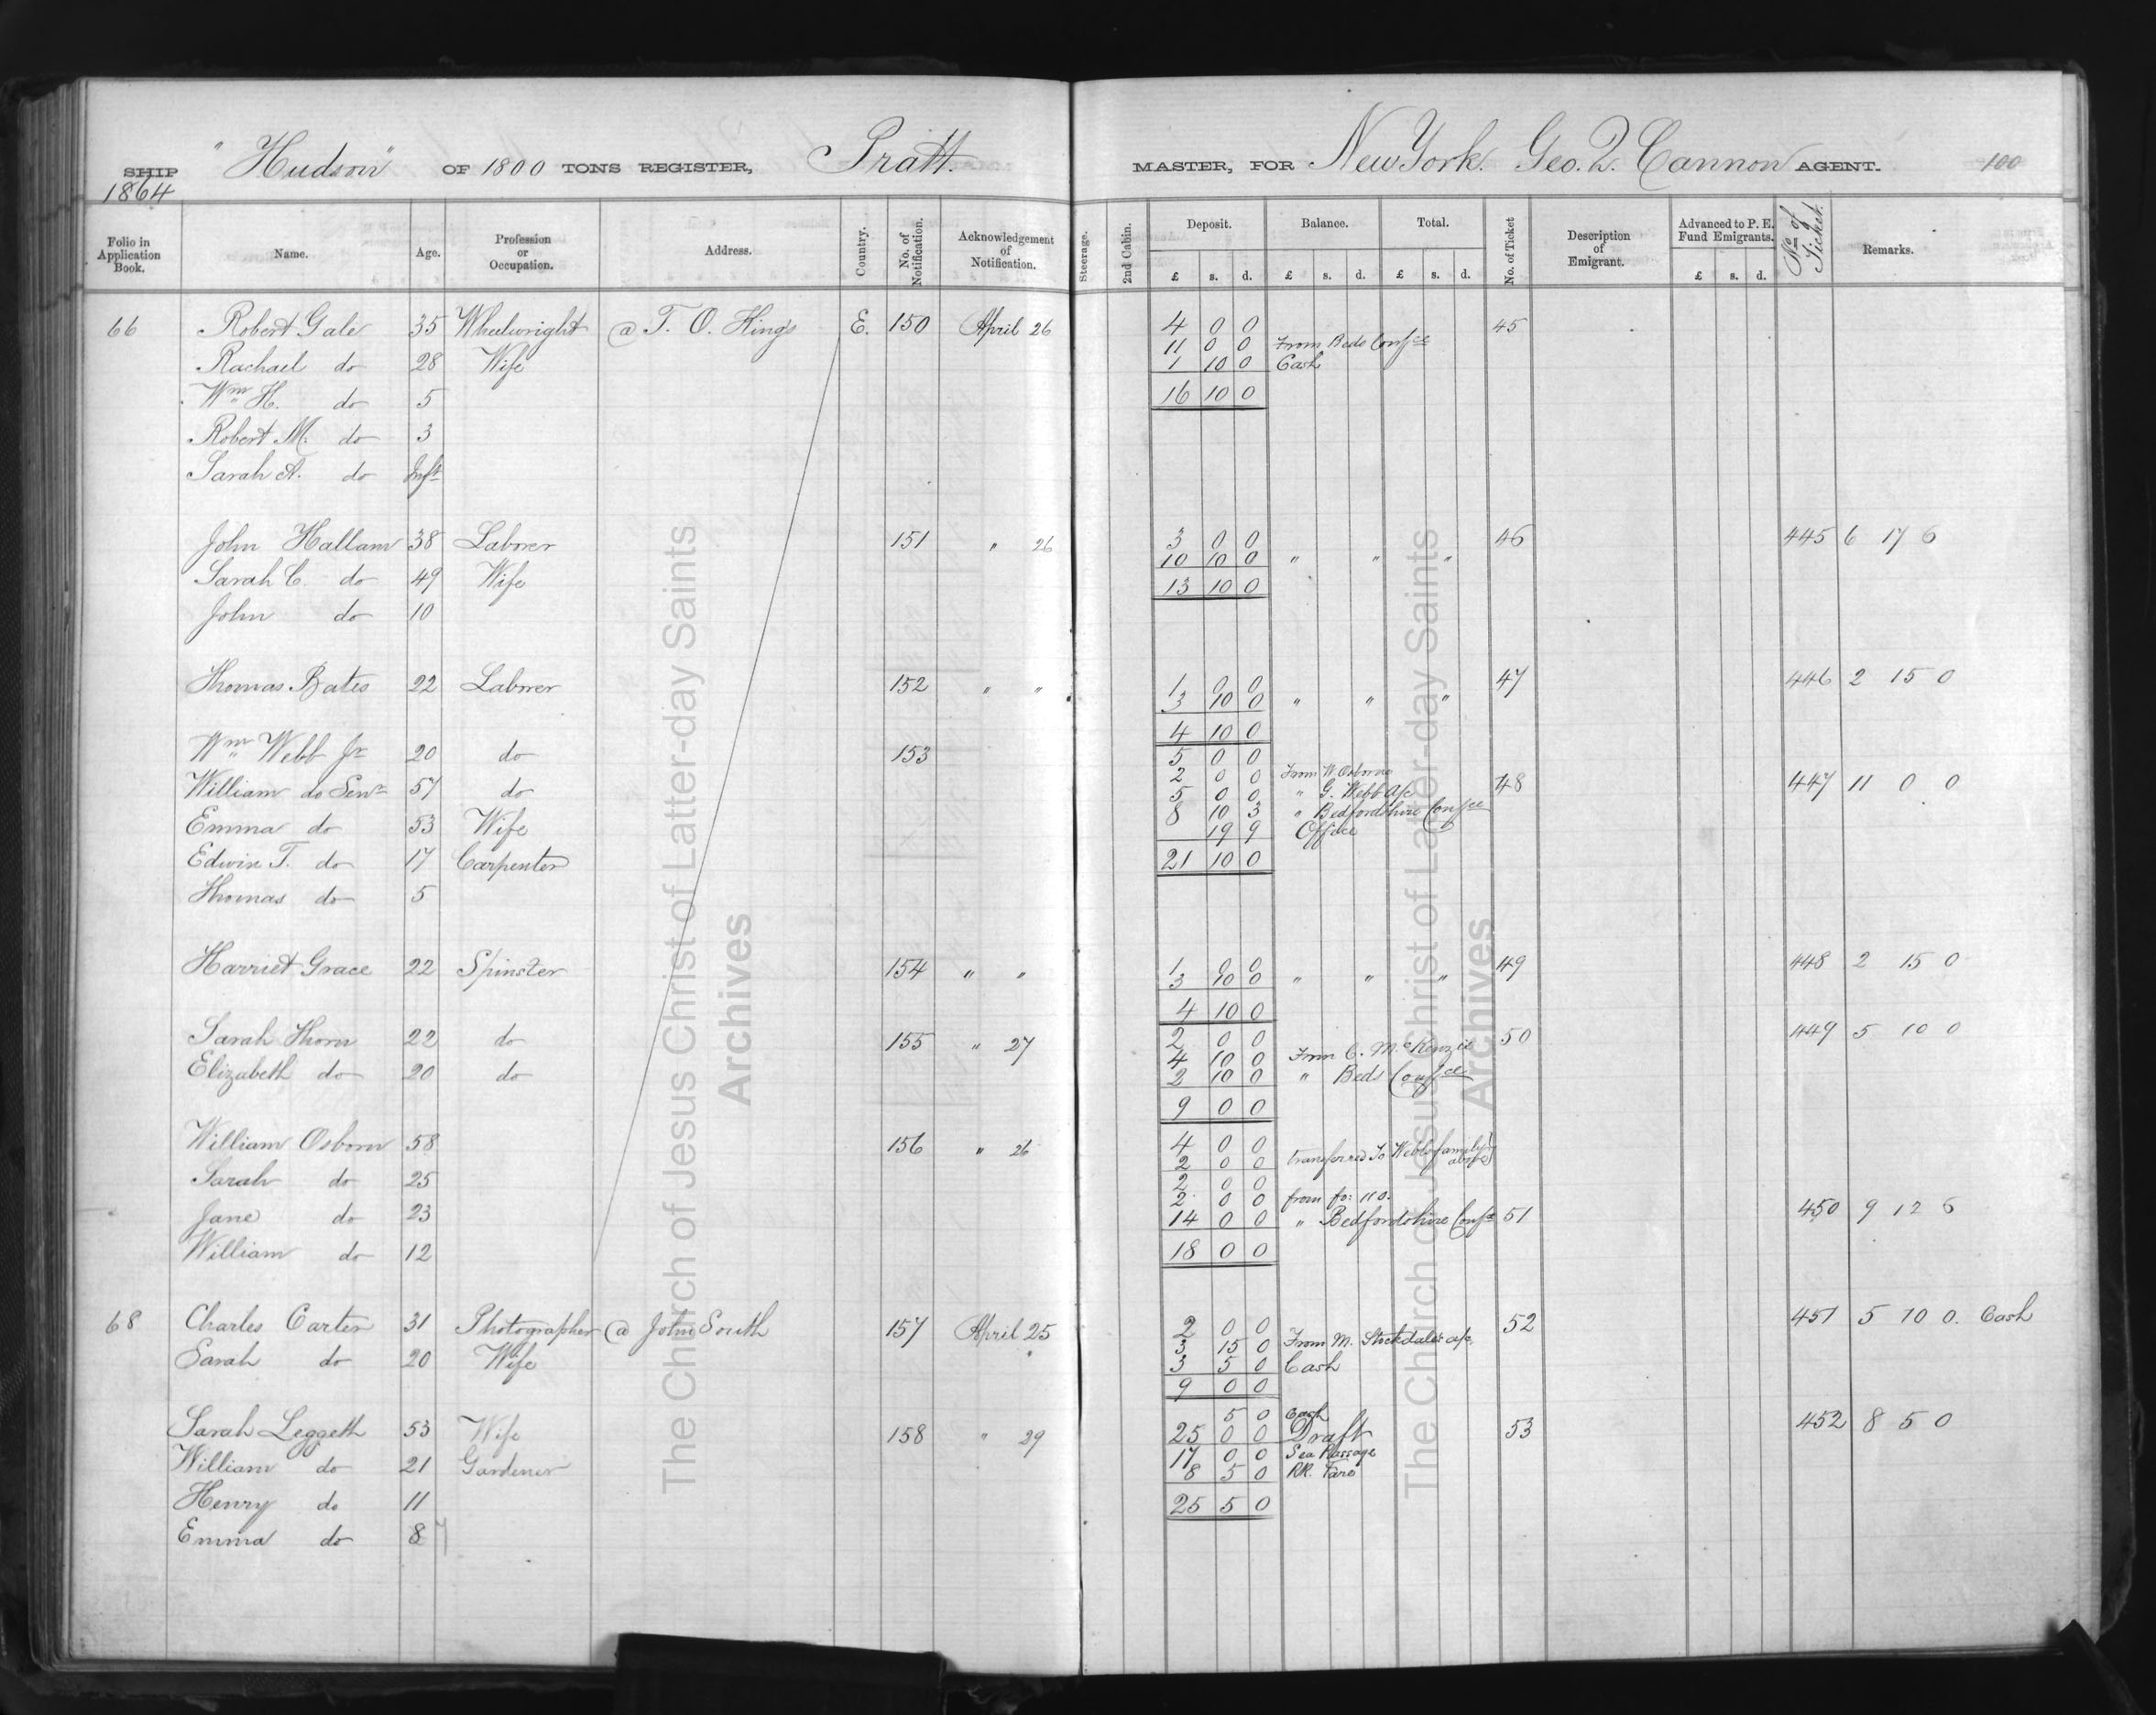 SHIP "Hudson" OF 1800 TONS REGISTER, Pratt. MASTER, FOR New York. Geo. Q. Cannon AGENT. 100
1864
Folio in Application Book. Name. Age. Profession or Occupation. Address. Country. No. of Notification. Acknowledgement of Notification. Steerage. 2nd Cabin. Deposit. £ s. d. Balance. £ s. d. Total. £ s. d. No. of Ticket Description of Emigrant. Advanced to P. E. Fund Emigrants. £ s. d. No. of Ticket. Remarks.
66 Robert Gale 35 Wheelwright @ T. O. Kings E. 150 April 26 4 0 0 45
11 0 0 From Beds Confce
Rachael do 28 Wife 1 10 0 Cash
Wm H. do 5 16 10 0
Robert M. do 3
Sarah A. do Inft
John Hallam 38 Laborer 151 " 26 3 0 0 46 445 6 17 6
10 10 0 " " "
Sarah C. do 49 Wife 13 10 0
John do 10
Thomas Bates 22 Laborer 152 " " 1 0 0 47 446 2 15 0
3 10 0 " " "
4 10 0
Wm Webb Jr 20 do 153 5 0 0
2 0 0 From W Osborne
William do Senr 57 do 5 0 0 " G. Webb a/c 48 447 11 0 0
8 10 3 " Bedfordshire Confce
Emma do 53 Wife 19 9 Office
Edwin T. do 17 Carpenter 21 10 0
Thomas do 5
Harriet Grace 22 Spinster 154 " " 1 0 0 49 448 2 15 0
3 10 0 " " "
4 10 0
Sarah Thorn 22 do 155 " 27 2 0 0 50 449 5 10 0
4 10 0 From C. McKenzie
Elizabeth do 20 do 2 10 0 " Beds Confce
9 0 0
William Osborn 58 156 " 26 4 0 0
2 0 0 transferred to Webb family above
Sarah do 25 2 0 0
2 0 0 from fo: 110.
Jane do 23 14 0 0 " Bedfordshire Confce 51 450 9 12 6
William do 12 18 0 0
68 Charles Carter 31 Photographer @ John South 157 April 25 2 0 0 52 451 5 10 0. Cash
3 15 0 From M. Stockdales a/c.
Sarah do 20 Wife 3 5 0 Cash
9 0 0
5 0 Cash
Sarah Leggeth 53 Wife 158 " 29 25 0 0 Draft 53 452 8 5 0
17 0 0 Sea Passage
William do 21 Gardener 8 5 0 RR. Fare
Henry do 11 25 5 0
Emma do 8
The Church of Jesus Christ of Latter-day Saints
Archives
The Church of Jesus Christ of Latter-day Saints
Archives